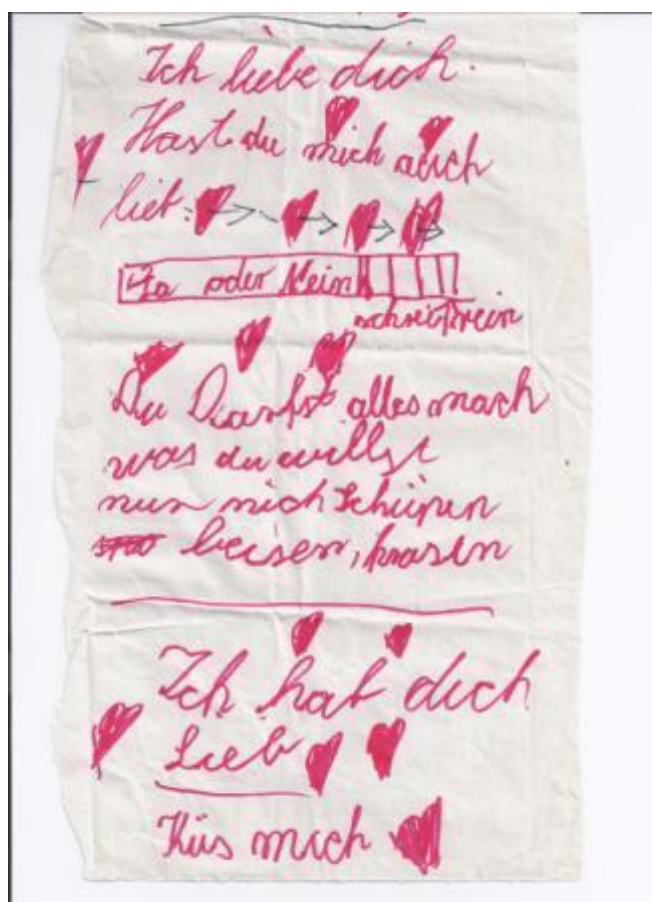 Ich liebe dich.
Hast du mich auch
lieb:
Ja oder Nein
schreib rein
Du Darfst alles mach
was du willst
nur nich Schüpen
beisen, krasen
Ich hat dich
Lieb
Küs mich